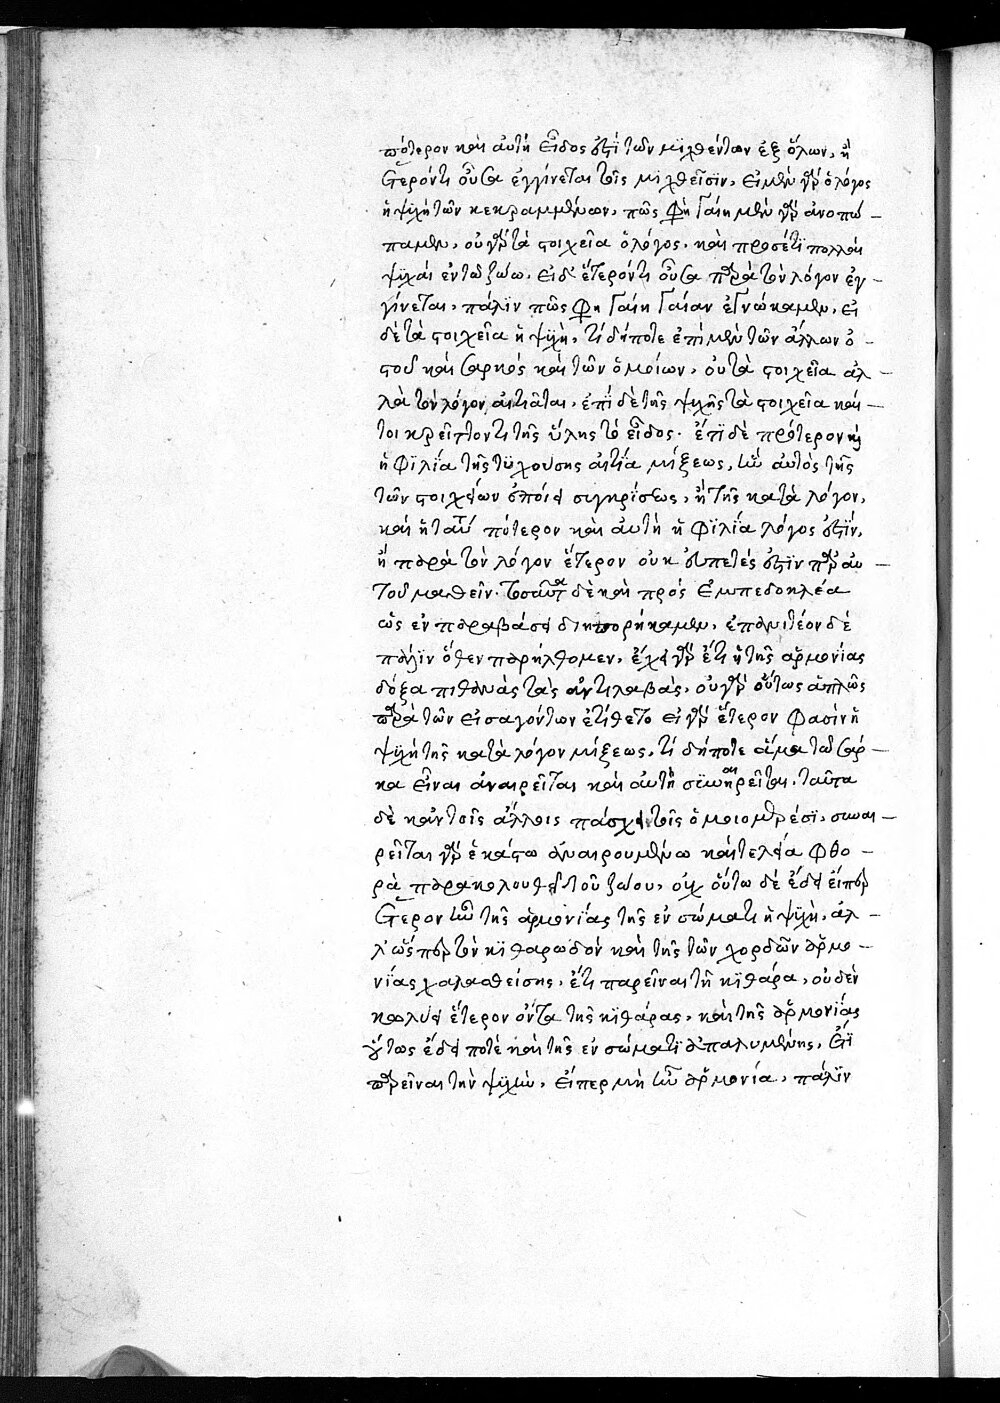 πότερον καὶ αὐτὴ εἶδος ἐστὶ τῶν μιχθέντων ἐξ ὅλων, ἢ
ἕτερόν τι οὖσα ἐγγίνεται τοῖς μιχθεῖσιν, εἰ μὲν γὰρ ὁ λόγος
ἡ ψυχὴ τῶν κεκραμμένων, πῶς φὴ γαίη μὲν γὰρ ἀνοπώ –
παμεν, οὐ γὰρ τὰ στοιχεῖα ὁ λόγος, καὶ προσέτι πολλαὶ
ψυχαὶ ἐν τῷ ζώω. εἰ δ' ἕτερόν τι οὖσα παρὰ τὸν λόγον ἐγ –
γίνεται, πάλιν πῶς φη γαίη γαῖαν ἐγνώκαμεν, εἰ
δὲ τὰ στοιχεῖα ἡ ψυχὴ, τί δήποτε ἐπὶ μὲν τῶν ἄλλων ὀ –
στοῦ καὶ σαρκὸς καὶ τῶν ὁμοίων, οὐ τὰ στοιχεῖα ἀλ –
λὰ τὸν λόγον αἰτιᾶται, ἐπὶ δὲ τῆς ψυχῆς τὰ στοιχεῖα καί –
τοι κρεῖττόν τι τῆς ὕλης τὸ εἶδος. ἔτι δὲ πρότερον
ἡ φιλία τῆς τυχούσης αἰτία μίξεως, ἦν αὐτὸς τῆς
τῶν στοιχείων ὁποίει συγκρίσεως, ἢ τῆς κατὰ λόγον,
καὶ ἡ πότερον καὶ αὐτὴ ἡ φιλία λόγος ἐστὶν,
ἢ παρὰ τὸν λόγον ἕτερον οὐκ εὐπετές ἐστιν παρ' αὐ –
τοῦ μαθεῖν. τοσαῦτα δὲ καὶ πρὸς Ἐμπεδοκλέα
ὡς ἐν παραβάσει διηπορήκαμεν, ἐπανιτέον δὲ
πάλιν ὅθεν παρήλθομεν, ἔχει γὰρ ἔτι ἡ τῆς ἁρμονίας
δόξα πιθανὰς τὰς ἀντιλαβὰς, οὐ γὰρ οὕτως ἁπλῶς
παρὰ τῶν εἰσαγόντων ἐτίθετο εἰ γὰρ ἕτερον φασὶν ἡ
ψυχὴ τῆς κατὰ λόγον μίξεως, τί δήποτε ἅμα τῷ σάρ –
κα εἶναι ἀναιρεῖται καὶ αὐτὴ συναιρεῖται. ταῦτα
δὲ κἀν τοῖς ἄλλοις πάσχει τοῖς ὁμοιομερέσι, συναι –
ρεῖται γὰρ ἑκάστω ἀναιρουμένω καὶ τελεία φθο –
ρὰ παρακολουθεῖ τοῦ ζώου, οὐχ οὕτω δὲ ἔδει εἴπερ
ἕτερον ἦν τῆς ἁρμονίας τῆς ἐν σώματι ἡ ψυχὴ, ἀλ –
λ' ὥσπερ τὸν κιθαρωδὸν καὶ τῆς τῶν χορδῶν ἁρμο –
νίας χαλασθείσης, ἔτι παρεῖναι τῇ κιθάρα, οὐδὲν
κωλύει ἕτερον ὄντα τῆς κιθάρας, καὶ τῆς ἁρμονίας
οὕτως ἔδει ποτὲ καὶ τῆς ἐν σώματι ἀπαλυμένης, ἔτι
παρεῖναι τὴν ψυχὴν, εἴπερ μὴ ἦν ἁρμονία, πάλιν